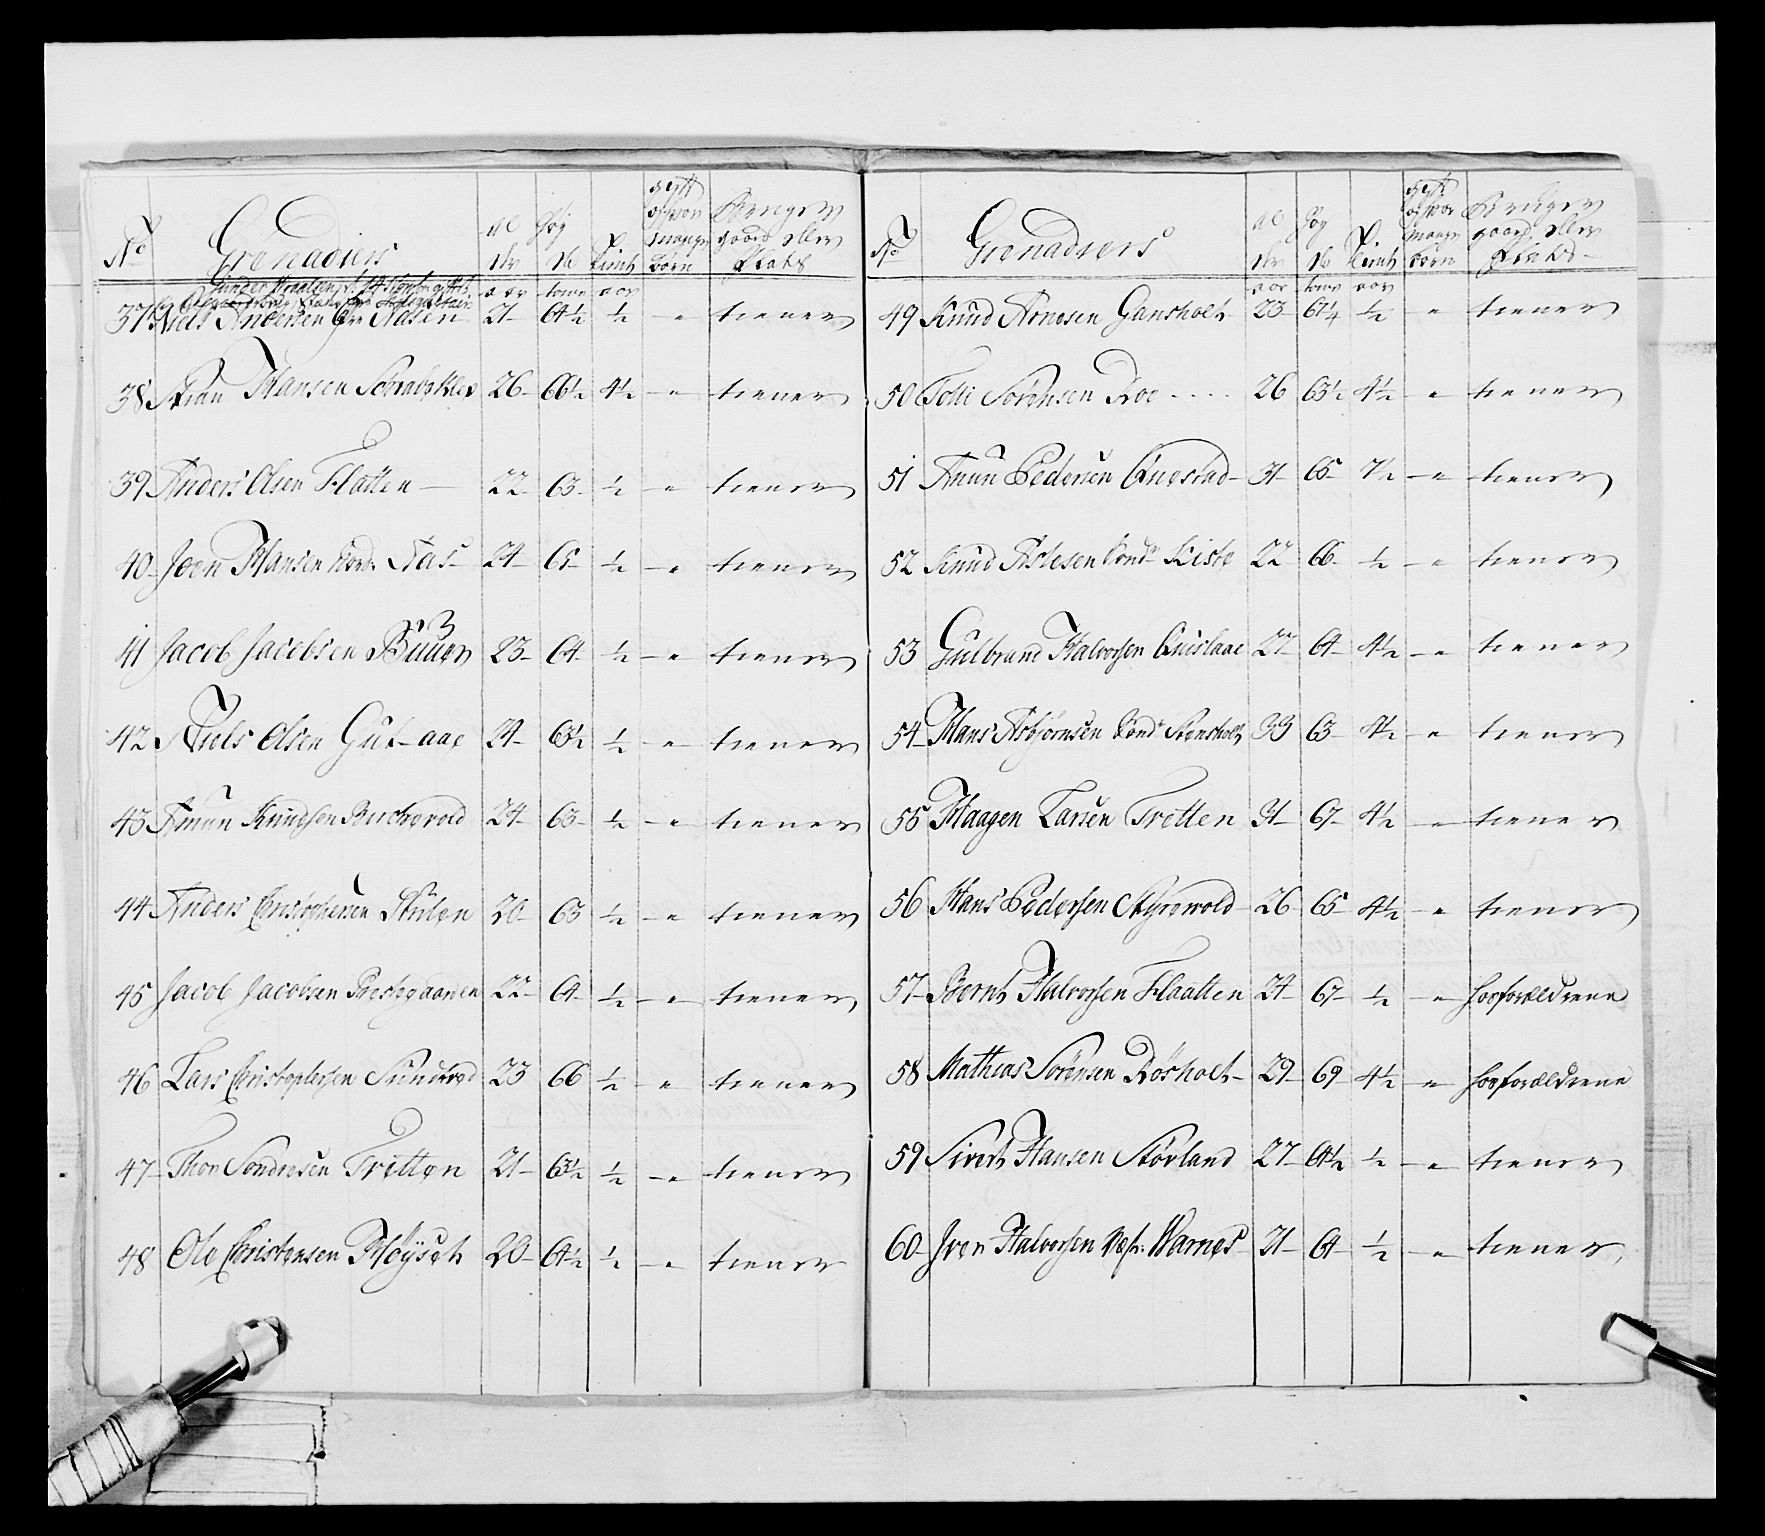 No
Grenadiers
al
der
høy
de
tient
gift
og hvor
mange
børn
Bruger
gaard eller
Plads
aar
tomr
aar
37 Niels Andersen Aasen 21 64½ ½ - " tiener
38 Hansen 26 66½ 4½ - " tiener
39 Anders Olsen Flatten 22 63 ½ - " tiener
40 Joen Hansen Nord: Aas 24 65 ½ - " tiener
41 Jacob Jacobsen Buuer 23 64 ½ - " tiener
42 Niels Olsen Gut-aae 24 63½ ½ - " tiener
43 Amun Knudsen Buchevold 24 63 ½ - " tiener
44 Anders Christophersen Stulen 20 63 ½ - " tiener
45 Jacob Jacobsen Prestegaarden 22 64 ½ - " tiener
46 Lars Christophersen Sundtved 23 66 ½ - " tiener
47 Thor Sondresen Tretten 21 63½ ½ - " tiener
48 Ole Christensen Høyset 20 64½ ½ - " tiener
No
Grenadiers
al
der
høy
de
tient
gift
og hvor
mange
børn
Bruger
gaard eller
Plads
aar
tomr
aar
49 Knud Arnesen Gansholt 23 61¼ ½ - " tiener
50 Tolli Sørensen Roe 26 63½ 4½ - " tiener
51 Amun Pedersen Questad 31 65 7½ - " tiener
52 Knud Aslesen Kiste 22 66 ½ - " tiener
53 Gulbrand Halvorsen Quislaae 27 64 4½ - " tiener
54 Hans Asbjørnsen Stensholt 33 63 4½ - " tiener
55 Haagen Larsen Tretten 31 67 4½ - tiener
56 Hans Pedersen Myrewold 26 65 4½ - " tiener
57 Bernt Halvorsen Flaatten 24 67 ½ - " hos forældrene
58 Mathias Sørensen Røsholt 29 69 4½ - " hos forældrene
59 Sivert Hansen Støvland 27 64½ ½ - " tiener
60 Iver Halvorsen Vest: Warnes 31 64 ½ - " tiener